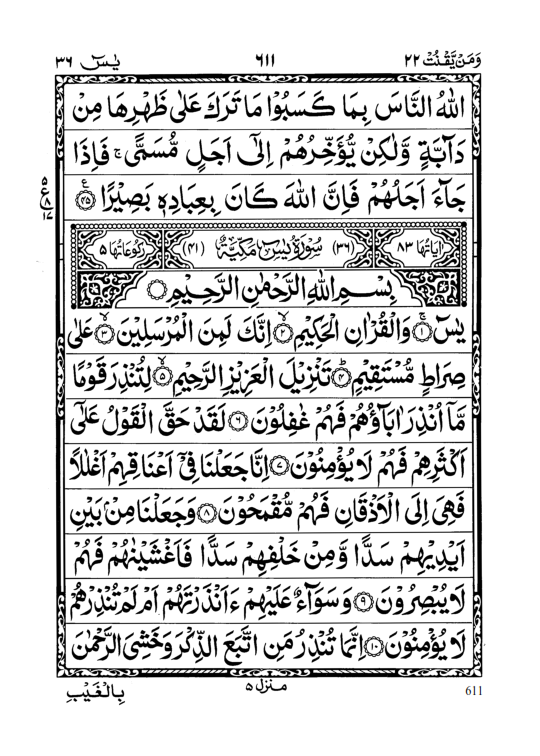 وَمَنۡ يَّقۡنُتۡ ٢٢ ٦١١ يٰسٓ ٣٦
اللّٰهُ النَّاسَ بِمَا كَسَبُوۡا مَا تَرَكَ عَلٰى ظَهۡرِهَا مِنۡ
دَآبَّةٍ وَّلٰكِنۡ يُّؤَخِّرُهُمۡ اِلٰٓى اَجَلٍ مُّسَمًّى ۚ فَاِذَا
جَآءَ اَجَلُهُمۡ فَاِنَّ اللّٰهَ كَانَ بِعِبَادِهٖ بَصِيۡرًا ﴿٤٥﴾
ع ٥ ٨ ١٧
اٰيَاتُهَا ٨٣ (٣٦) سُوۡرَةُ يٰسٓ مَكِّيَّةٌ (٤١) رُكُوۡعَاتُهَا ٥
بِسۡمِ اللّٰهِ الرَّحۡمٰنِ الرَّحِيۡمِ
يٰسٓ ۚ﴿١﴾ وَالۡقُرۡاٰنِ الۡحَكِيۡمِ ۙ﴿٢﴾ اِنَّكَ لَمِنَ الۡمُرۡسَلِيۡنَ ۙ﴿٣﴾ عَلٰى
صِرَاطٍ مُّسۡتَقِيۡمٍ ؕ﴿٤﴾ تَنۡزِيۡلَ الۡعَزِيۡزِ الرَّحِيۡمِ ۙ﴿٥﴾ لِتُنۡذِرَ قَوۡمًا
مَّاۤ اُنۡذِرَ اٰبَآؤُهُمۡ فَهُمۡ غٰفِلُوۡنَ ﴿٦﴾ لَقَدۡ حَقَّ الۡقَوۡلُ عَلٰٓى
اَكۡثَرِهِمۡ فَهُمۡ لَا يُؤۡمِنُوۡنَ ﴿٧﴾ اِنَّا جَعَلۡنَا فِىۡۤ اَعۡنَاقِهِمۡ اَغۡلٰلًا
فَهِىَ اِلَى الۡاَذۡقَانِ فَهُمۡ مُّقۡمَحُوۡنَ ﴿٨﴾ وَجَعَلۡنَا مِنۡۢ بَيۡنِ
اَيۡدِيۡهِمۡ سَدًّا وَّمِنۡ خَلۡفِهِمۡ سَدًّا فَاَغۡشَيۡنٰهُمۡ فَهُمۡ
لَا يُبۡصِرُوۡنَ ﴿٩﴾ وَسَوَآءٌ عَلَيۡهِمۡ ءَاَنۡذَرۡتَهُمۡ اَمۡ لَمۡ تُنۡذِرۡهُمۡ
لَا يُؤۡمِنُوۡنَ ﴿١٠﴾ اِنَّمَا تُنۡذِرُ مَنِ اتَّبَعَ الذِّكۡرَ وَخَشِىَ الرَّحۡمٰنَ
منزل ٥
بِالۡغَيۡبِ
611